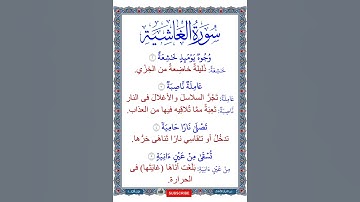 سُورَةُ الْغَاشِيَةِ
وُجُوهٌ يَوْمَئِذٍ خَاشِعَةٌ
خَاشِعَةٌ: ذَلِيلَةٌ خَاضِعَةٌ من الخِزْي.
عَامِلَةٌ نَّاصِبَةٌ
عَامِلَةٌ: تَجُرُّ السلاسلَ والأغلالَ فى النار
نَّاصِبَةٌ: تَعِبَةٌ ممَّا تُلاقِيه فيها من العذاب.
تَصْلَىٰ نَارًا حَامِيَةً
تدخُلُ أو تقاسِي نارًا تَنَاهَى حَرُّها.
تُسْقَىٰ مِنْ عَيْنٍ ءَانِيَةٍ
مِنْ عَيْنٍ ءَانِيَةٍ: بلَغَت أَنَاهَا (غايتَها) فى
الحرارة.
SUBSCRIBE